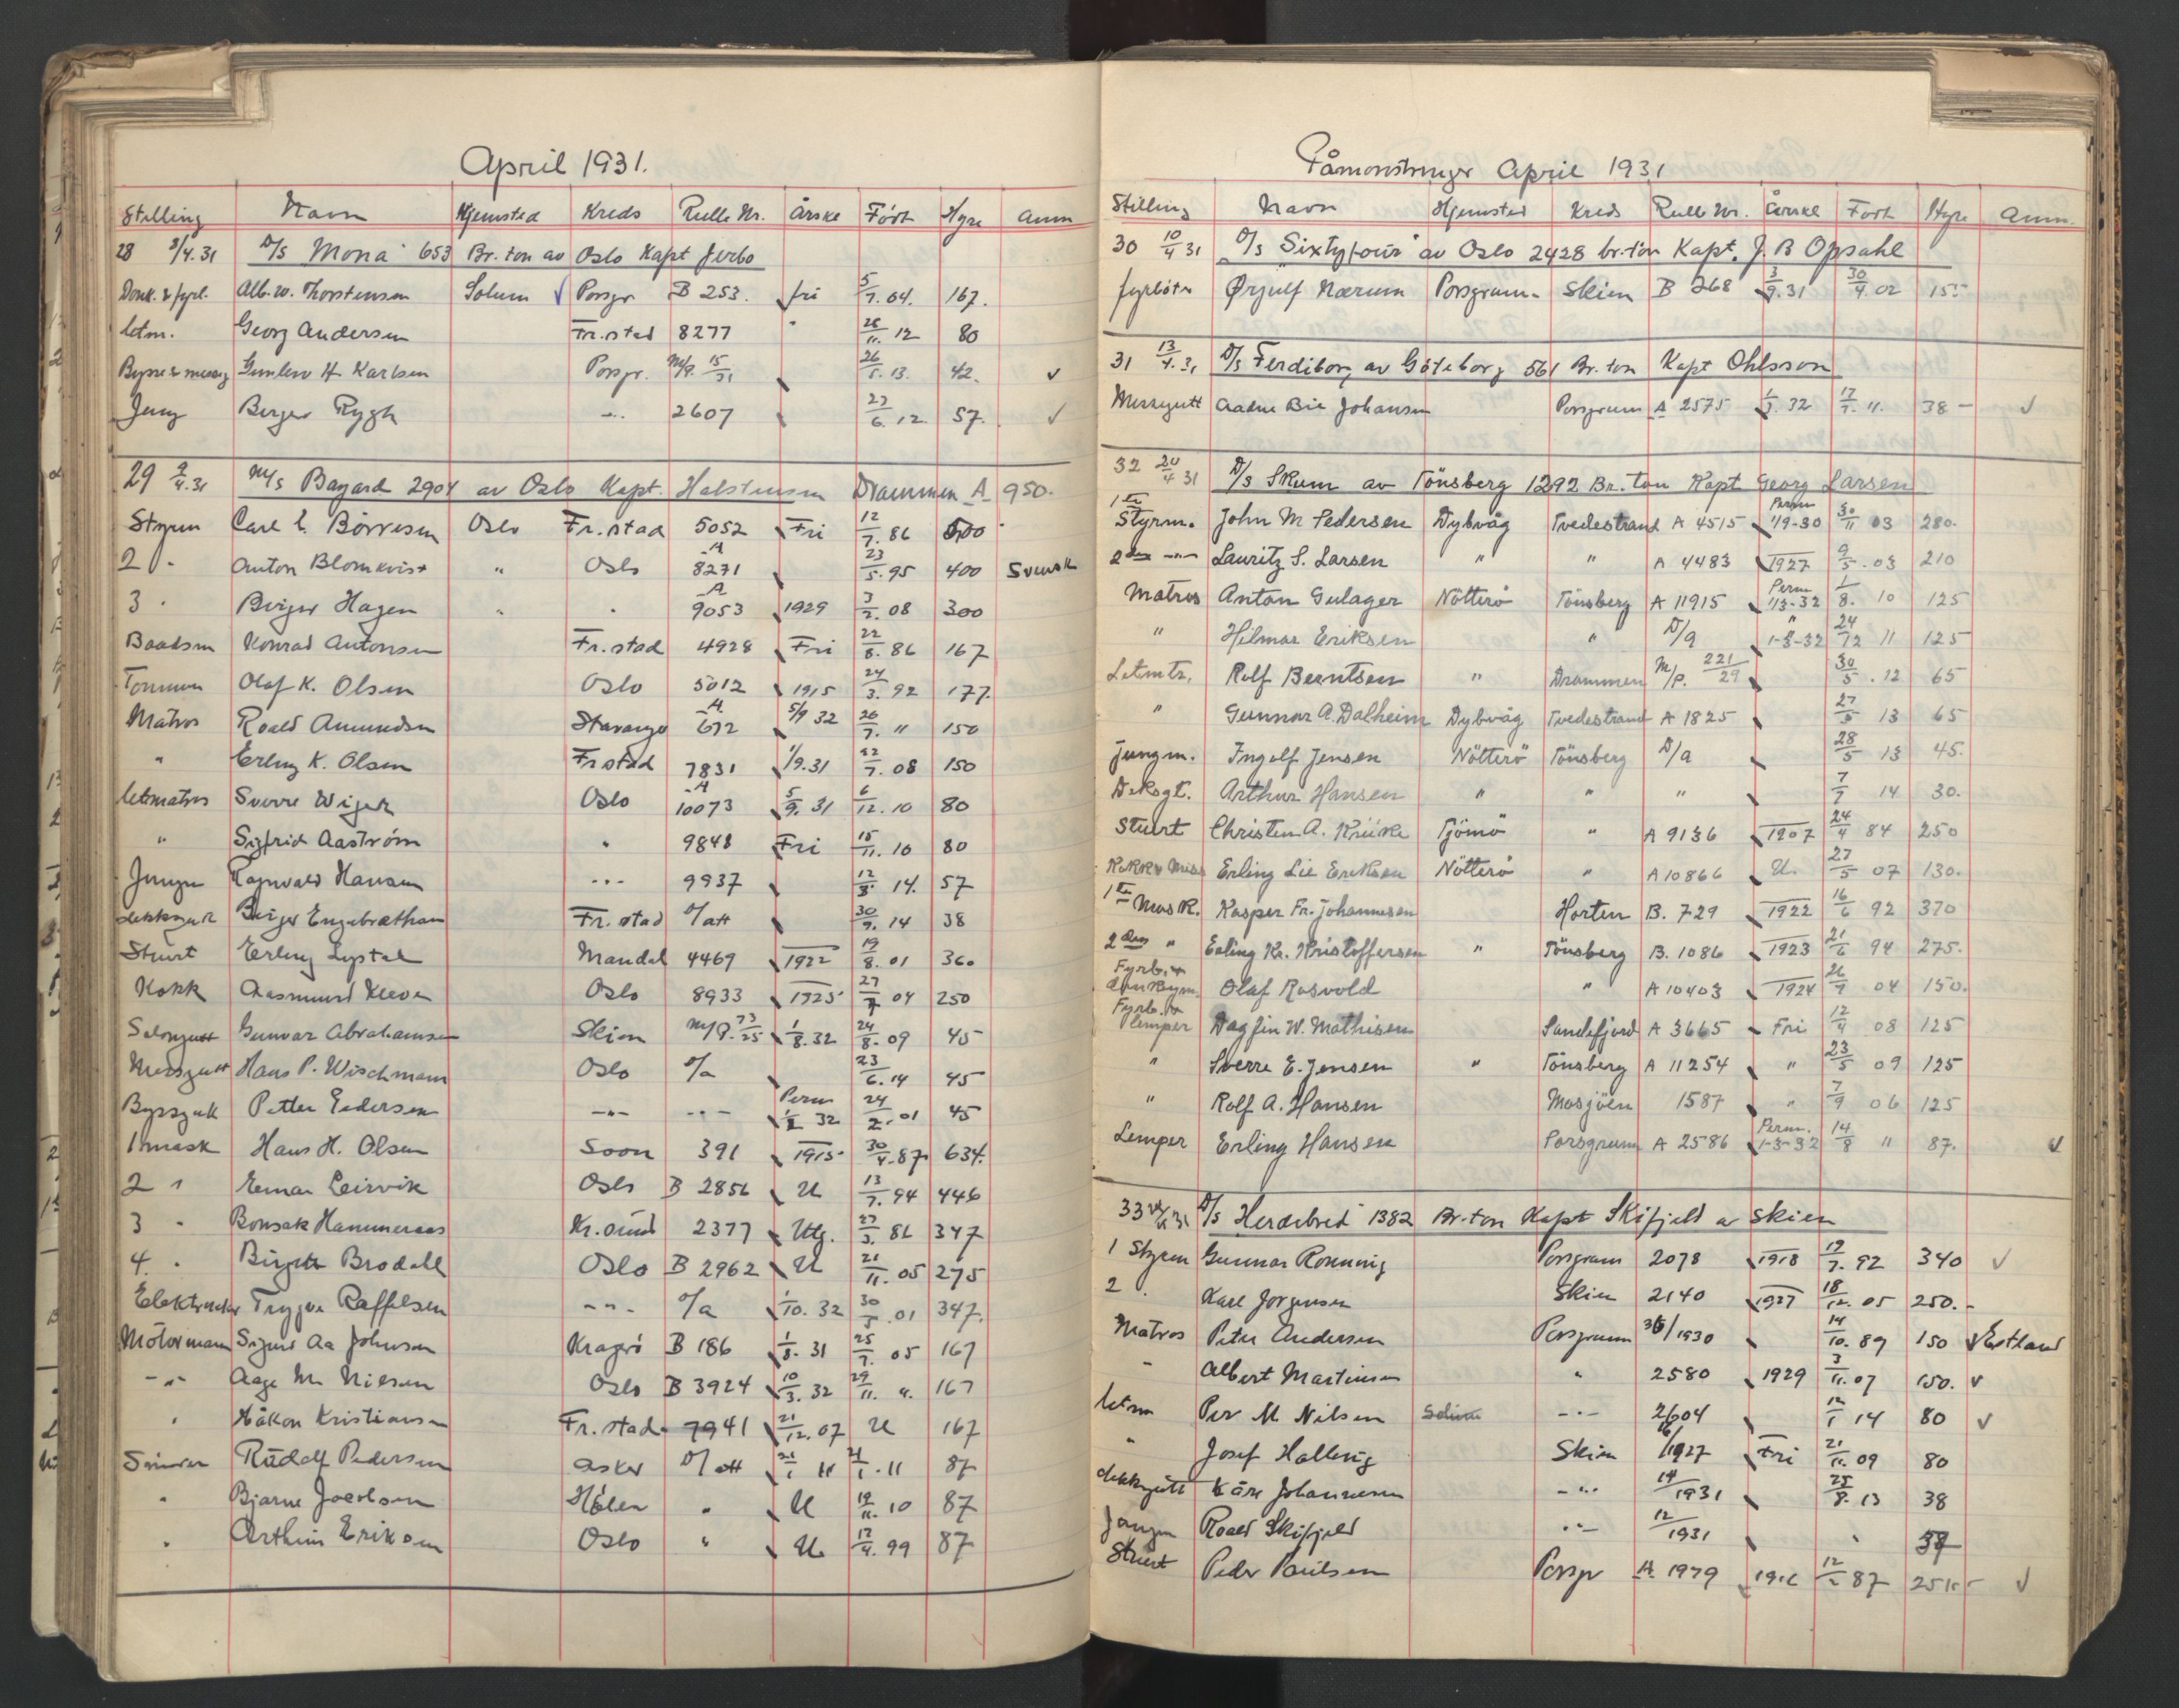 April 1931.
Stilling Navn Hjemsted Kreds Rulle Nr. Årskl Födt Hyre Anm
28 8/4.31 D/s "Mona" 653 Br. ton av Oslo Kapt Jerbo
Donk. & fyrb. Alb. W. Thorstensen Solum Porsgr. B 253. fri 5/7. 04. 167.
letm. Georg Andersen Fr.stad 8277 " 28/11. 12 80
Gunleiv H Karlsen Porsgr. M/P. 15/31 26/5. 13. 42. v
Jung Birger Rygh -"- 2607 23/6. 12. 57. v
29 9/4.31 M/s Bayard 2904 av Oslo Kapt. Halstensen Drammen A 950.
Styrm Carl L. Börresen Oslo Fr.stad 5052 Fri 12/7. 86 600
2 " Anton Blomkvist " Oslo A 8271 23/5. 95 400 Svensk
3 " Birger Hagen " " A 9053 1929 3/2. 08 300
Baadsm Konrad Antonsen Fr.stad 4928 Fri 22/8. 86 167
Tömmerm Olaf K. Olsen Oslo 5012 1915 24/3. 92 177.
Matros Roald Amundsen Stavanger A 672 5/9 32 26/7. " 150
" Erling K. Olsen Fr.stad 7831 1/9.31 22/7. 08 150
letmatros Sverre Wiger Oslo A 10073 5/9. 31 6/12. 10 80
" Sigfrid Aaström " 9848 Fri 15/11. 10 80
Jungm Ragnvald Hansen -"- 9937 12/8. 14. 57
dekksgutt Birger Engebrethsen Fr.stad o/att 30/9. 14 38
Stuert Erling Lystad Mandal 4469 1922 19/8. 01 360
Kokk Aasmund Kleven Oslo 8933 1925 27/7 04 250
Salongutt Gunvar Abrahamsen Skien M/P. 73/25 1/8. 32 24/8. 09 45
Messgutt Hans P. Wischmann Oslo o/a 23/6. 14 45
Byssgutt Petter Pedersen -"- -"- Perm 1/2 32 24/2. 01 45
1 mask Hans H. Olsen Soon 391 1915 30/4. 87 634.
2 " Einar Leirvik Oslo B 2856 U 13/7. 94 446
3 " Bonsak Hammeraas Kr.sund 2377 Utg. 27/3. 86 347
4. " Birger Brodahl Oslo B 2962 U 21/11. 05 275
Elektriker Trygve Raffelsen -"- o/a 1/10. 32 30/5. 01 347.
Motormann Sigurd Aa Johnsen Kragerö B 186 1/8. 31 25/7. 05 167
-"- Aage M. Nilsen Oslo B 3924 10/3. 32 29/11. " 167
" Håkon Kristiansen Fr.stad 7941 21/12. 07 U 167
Smörer Rudolf Pedersen Asker o/att 21/1 11 21/1. 11 87
" Bjarne Jacobsen Hölen " U 19/11. 10 87
" Arthur Eriksen Oslo " U 12/4. 99 87
Påmonstringer April 1931
Stilling Navn Hjemsted Kreds Rulle Nr. Årskl Födt Hyre Anm.
30 10/4 31 D/s "Sixtyfour" av Oslo 2428 br.ton Kapt. J. B Opsahl
fyrböter Ørjulf Nærum Porsgrunn Skien B 268 3/9.31 30/4. 02 155
31 13/4.31 D/s Ferdiborg av Göteborg 561 Br. ton Kapt Ohlsson
Messgutt Aadne Bie Johansen Porsgrunn A 2575 1/3. 32 17/7. 11. 38 - v
32 20/4 31 D/s Skum av Tönsberg 1292 Br. ton Kapt Georg Larsen
1ste Styrm. John M Pedersen Dybvåg Tvedestrand A 4515 Perm 1/9-30 30/11 03 280.
2den -"- Lauritz S. Larsen " " A 4483 1927 9/5. 03 210
Matros Anton Gulager Nötterö Tönsberg A 11915 Perm 1/3-32 1/8. 10 125
" Hilmar Eriksen " D/a " 1-8-32 24/12 11 125
Letmtr. Rolf Berntsen " Drammen M/P. 221/29 30/5. 12 65
" Gunnar A. Dalheim Dybvåg Tvedestrand A 1825 27/5 13 65
jungm. Ingolf Jensen Nötterö Tönsberg D/a 28/5 13 45.
Deksgt. Arthur Hansen " " " 7/7 14 30.
Stuert Christen A. Krüke Tjömö " A 9136 1907 24/4 84 250
Kokk & Mess Erling Lie Eriksen Nötterö " A 10866 U. 27/5 07 130.
1ste Mask. Kasper Fr. Johannesen Horten B. 729 1922 16/6 92 370
2den " Erling Kr. Kristoffersen " Tönsberg B. 1086 1923 21/6 94 275.
Fyrb. & donkeym. Olaf Rosvold " A 10403 1924 26/9 04 150.
Fyrb. & lemper Dagfin W. Mathisen Sandefjord A 3665 Fri 12/4 08 125
" Sverre E. Jensen " Tönsberg A 11254 " 23/5 09 125
" Rolf A. Hansen Mosjöen 1587 " 7/9 06 125
Lemper Erling Hansen Porsgrunn A 2586 Perm. 1-3-32 14/8 11 87. v
33 D/s "Herdebred" 1382 Br. ton Kapt Skifjeld av Skien
1 Styrm Gunnar Rönning Porsgrunn 2078 1918 19/7. 92 340 v
2 " Karl Jörgensen Skien 2140 1927 18/12. 05 250. -
Matros Peter Andersen Porsgrunn 36/1930 14/10. 89 150 v Estland
" Albert Martinsen " 2580 1929 3/11. 07 150. v
letm Per M Nilsen Solum -"- 2604 12/1 14 80 v
" Josef Halling Skien 16/1927 Fri 21/11. 09 80
dekksgutt Kåre Johannesen -"- 14/1931 25/8. 13 38
Jungm Roald Skifjeld -"- 12/1931 " 57
Stuert Peder Paulsen Porsgr A. 1979 1912 12/2 87 255 - v